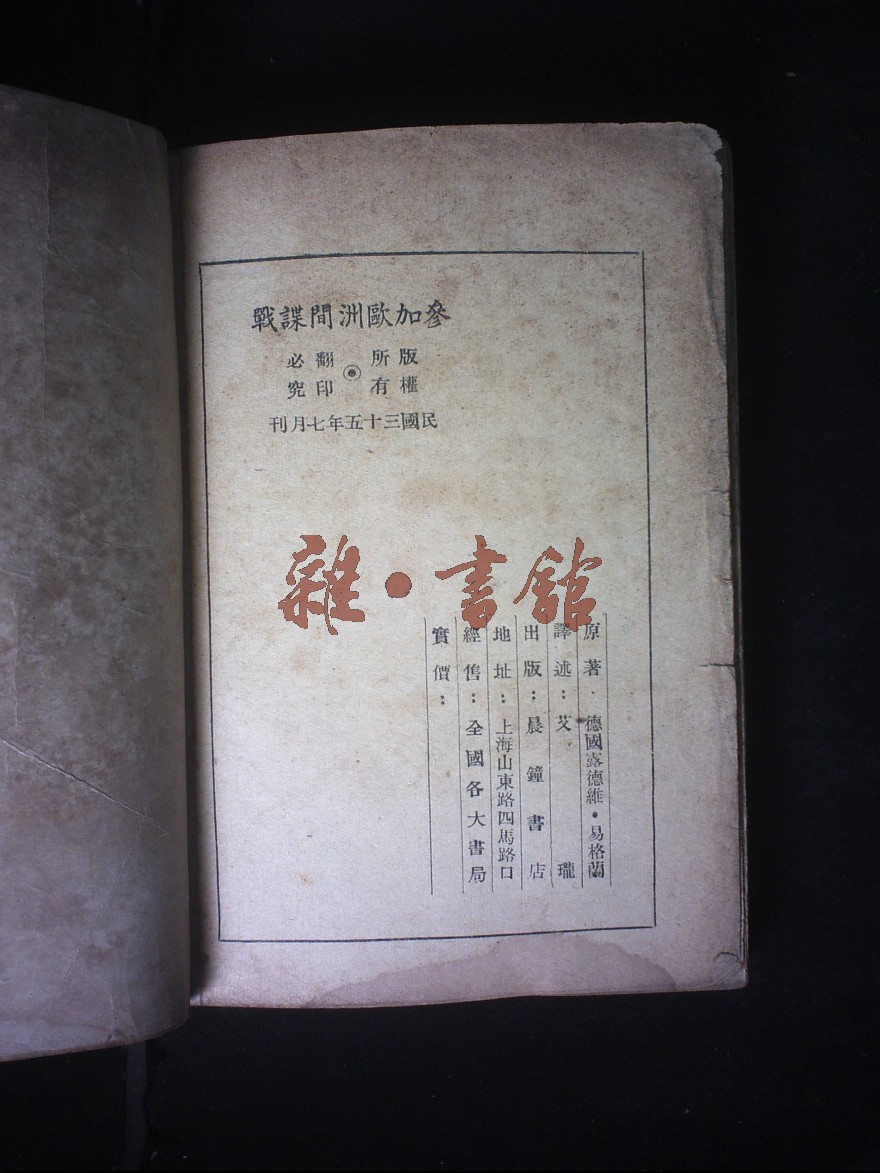 參加歐洲間諜戰
版權所有
翻印必究
民國三十五年七月刊
雜·書館
原著：德國露德維·易格蘭
譯述：艾瓏
出版：晨鐘書店
地址：上海山東路四馬路口
經售：全國各大書局
實價：